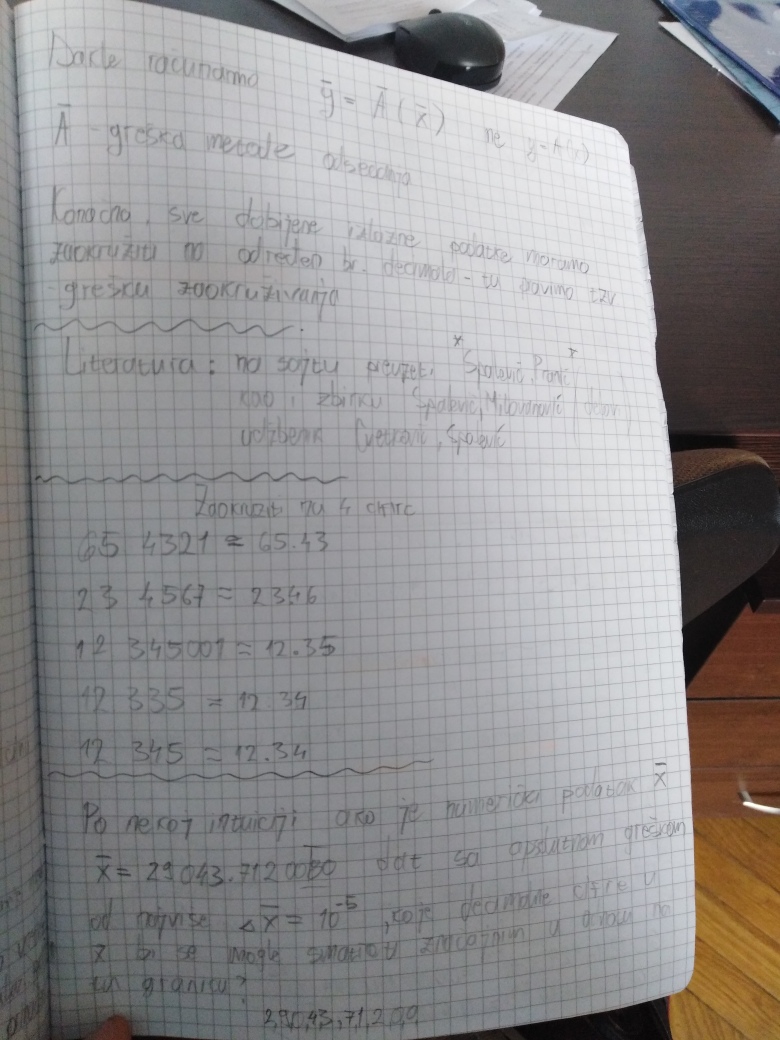 Dakle računamo ȳ = Ā(x̄) ne y=A(x)
Ā - greška metode odsecanja
Konačno, sve dobijene izlazne podatke moramo
zaokružiti na određen br. decimala - tu pavimo tzv
grešku zaokruživanja
Literatura: na sajtu Spalević, Pranić
kao i zbirku Spalević, Milovanović
udžbenik Cvetković, Spalević
Zaokružiti na 4 cifre
65 4321 = 65.43
23 4567 = 2346
12 345001 = 12.35
12 335 = 12.34
12 345 = 12.34
Po nekoj intuiciji ako je numerički podatak x̄
x̄ = 29043.7120 dat sa apsolutnom greškom
od najviše Δx̄ = 10⁻⁵, koje decimalne cifre u
x̄ bi se mogle smatrati značajnim u odnosu na
tu granicu?